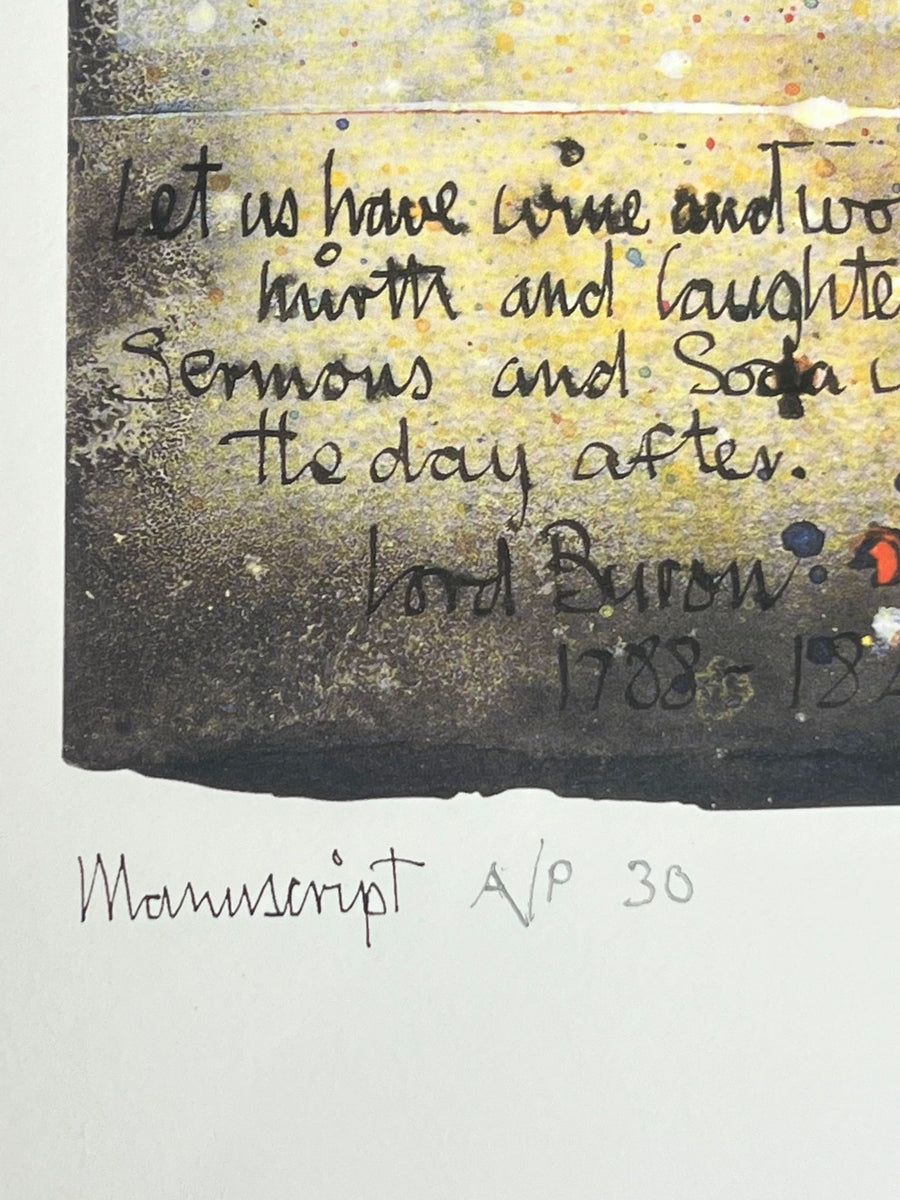 Let us have wine and wo
mirth and laughte
Sermons and Soda
the day after.
Lord Byron
1788 - 182
Manuscript A/P 30